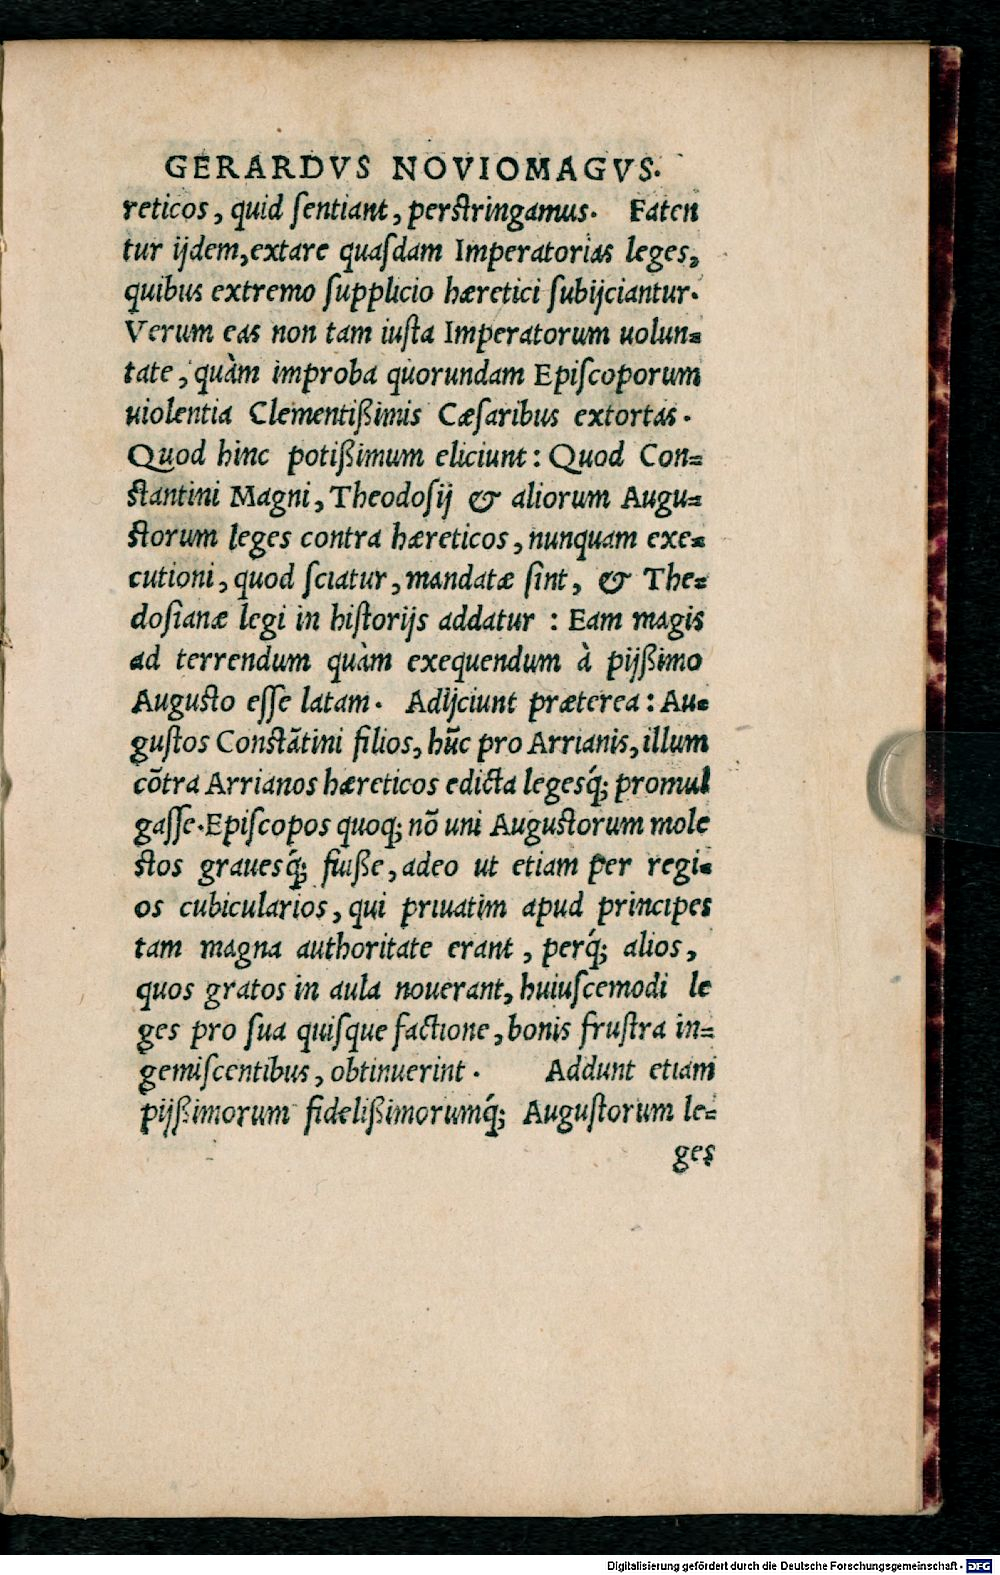 GERARDVS NOVIOMAGVS.
reticos, quid ſentiant, perſtringamus. Faten
tur ijdem, extare quaſdam Imperatorias leges,
quibus extremo ſupplicio hæretici ſubijciantur.
Verum eas non tam iuſta Imperatorum uolun-
tate, quàm improba quorundam Epiſcoporum
uiolentia Clementißimis Cæſaribus extortas.
Quod hinc potißimum eliciunt: Quod Con-
ſtantini Magni, Theodoſij & aliorum Augu-
ſtorum leges contra hæreticos, nunquam exe-
cutioni, quod ſciatur, mandatæ ſint, & The-
doſianæ legi in hiſtorijs addatur : Eam magis
ad terrendum quàm exequendum à pijßimo
Auguſto eſſe latam. Adijciunt præterea: Au-
guſtos Conſtãtini filios, hũc pro Arrianis, illum
cõtra Arrianos hæreticos edicta legesq́; promul
gaſſe. Epiſcopos quoq; nõ uni Auguſtorum mole
ſtos grauesq́; fuiße, adeo ut etiam per regi-
os cubicularios, qui priuatim apud principes
tam magna authoritate erant, perq́; alios,
quos gratos in aula nouerant, huiuſcemodi le
ges pro ſua quiſque factione, bonis fruſtra in-
gemiſcentibus, obtinuerint. Addunt etiam
pijßimorum fidelißimorumq́; Auguſtorum le-
ges
Digitalisierung gefördert durch die Deutsche Forschungsgemeinschaft - DFG